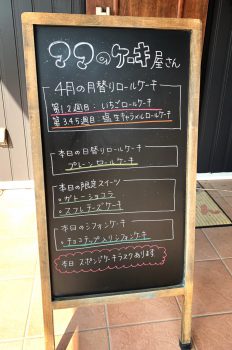 ママのケーキ屋さん
4月の月替りロールケーキ
第12週目：いちごロールケーキ
第345週目：塩生キャラメルロールケーキ
本日の日替りロールケーキ
プレーンロールケーキ
本日の限定スイーツ
・ガトーショコラ
・スフレチーズケーキ
本日のシフォンケーキ
・チョコチップ入りシフォンケーキ
本日 スポンジケーキラスクあります